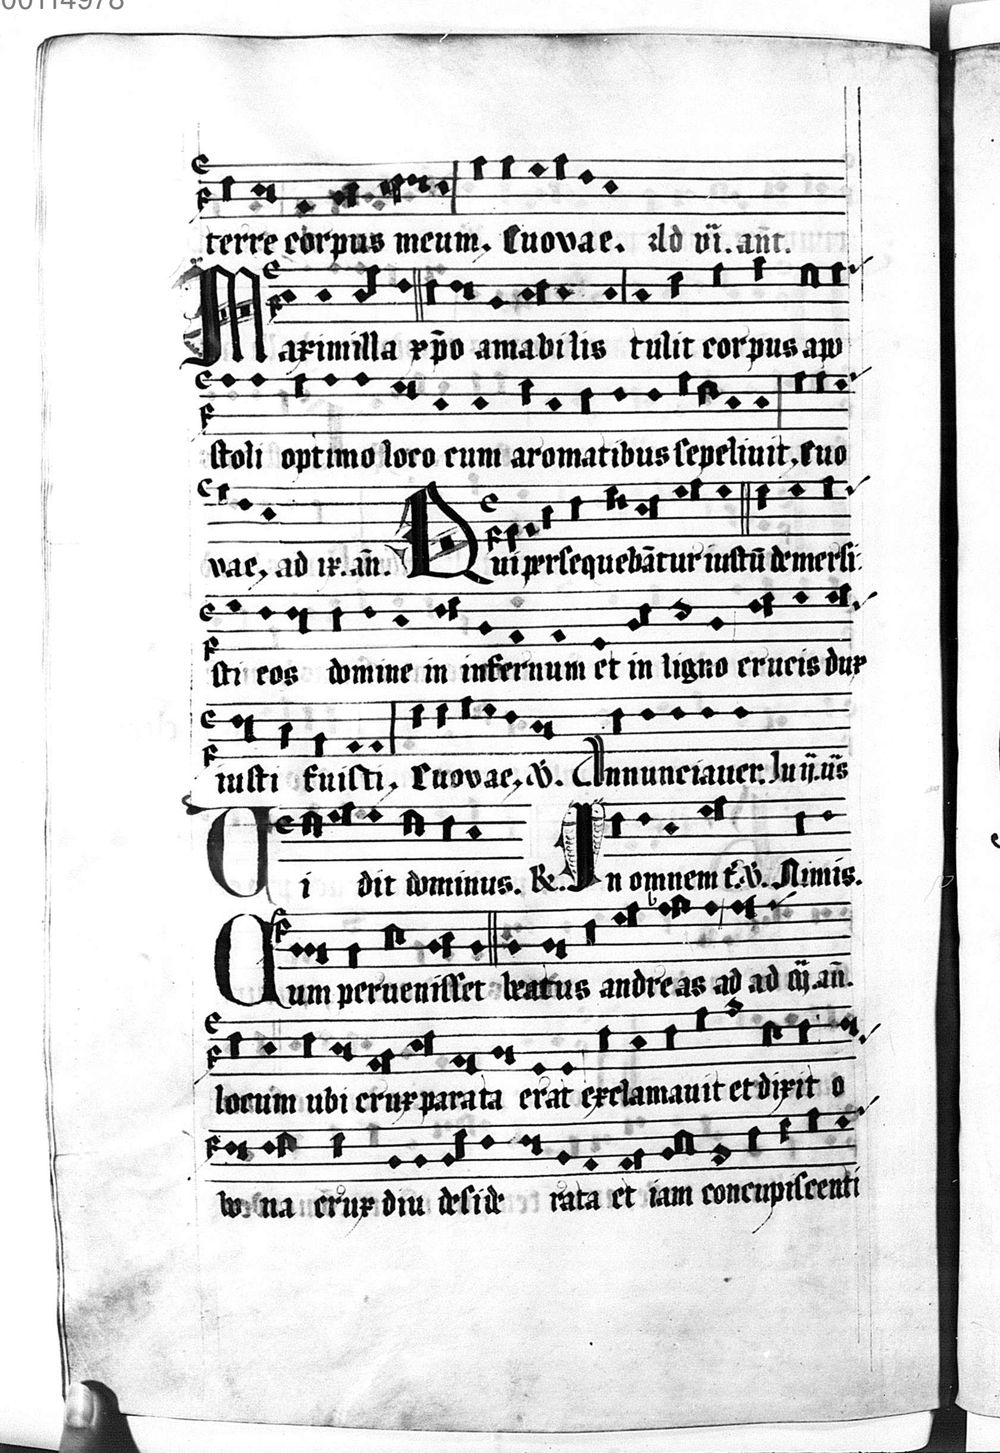 00114978
terre corpus meum. Euovae. Ad vi. añt.
Maximilla xp̄o amabilis tulit corpus apo
stoli optimo loco cum aromatibus sepeliuit. Euo
vae. ad ix. añ. Qui persequebātur iustū demersi
sti eos domine in infernum et in ligno crucis dux
iusti fuisti. Euovae. V̄. Annunciauer.
Ci dit dominus. R. In omnem t. V̄. Nimis.
Cum peruenisset beatus andreas ad ad añ.
locum ubi crux parata erat exclamauit et dixit o
bo na crux diu deside rata et iam concupiscenti